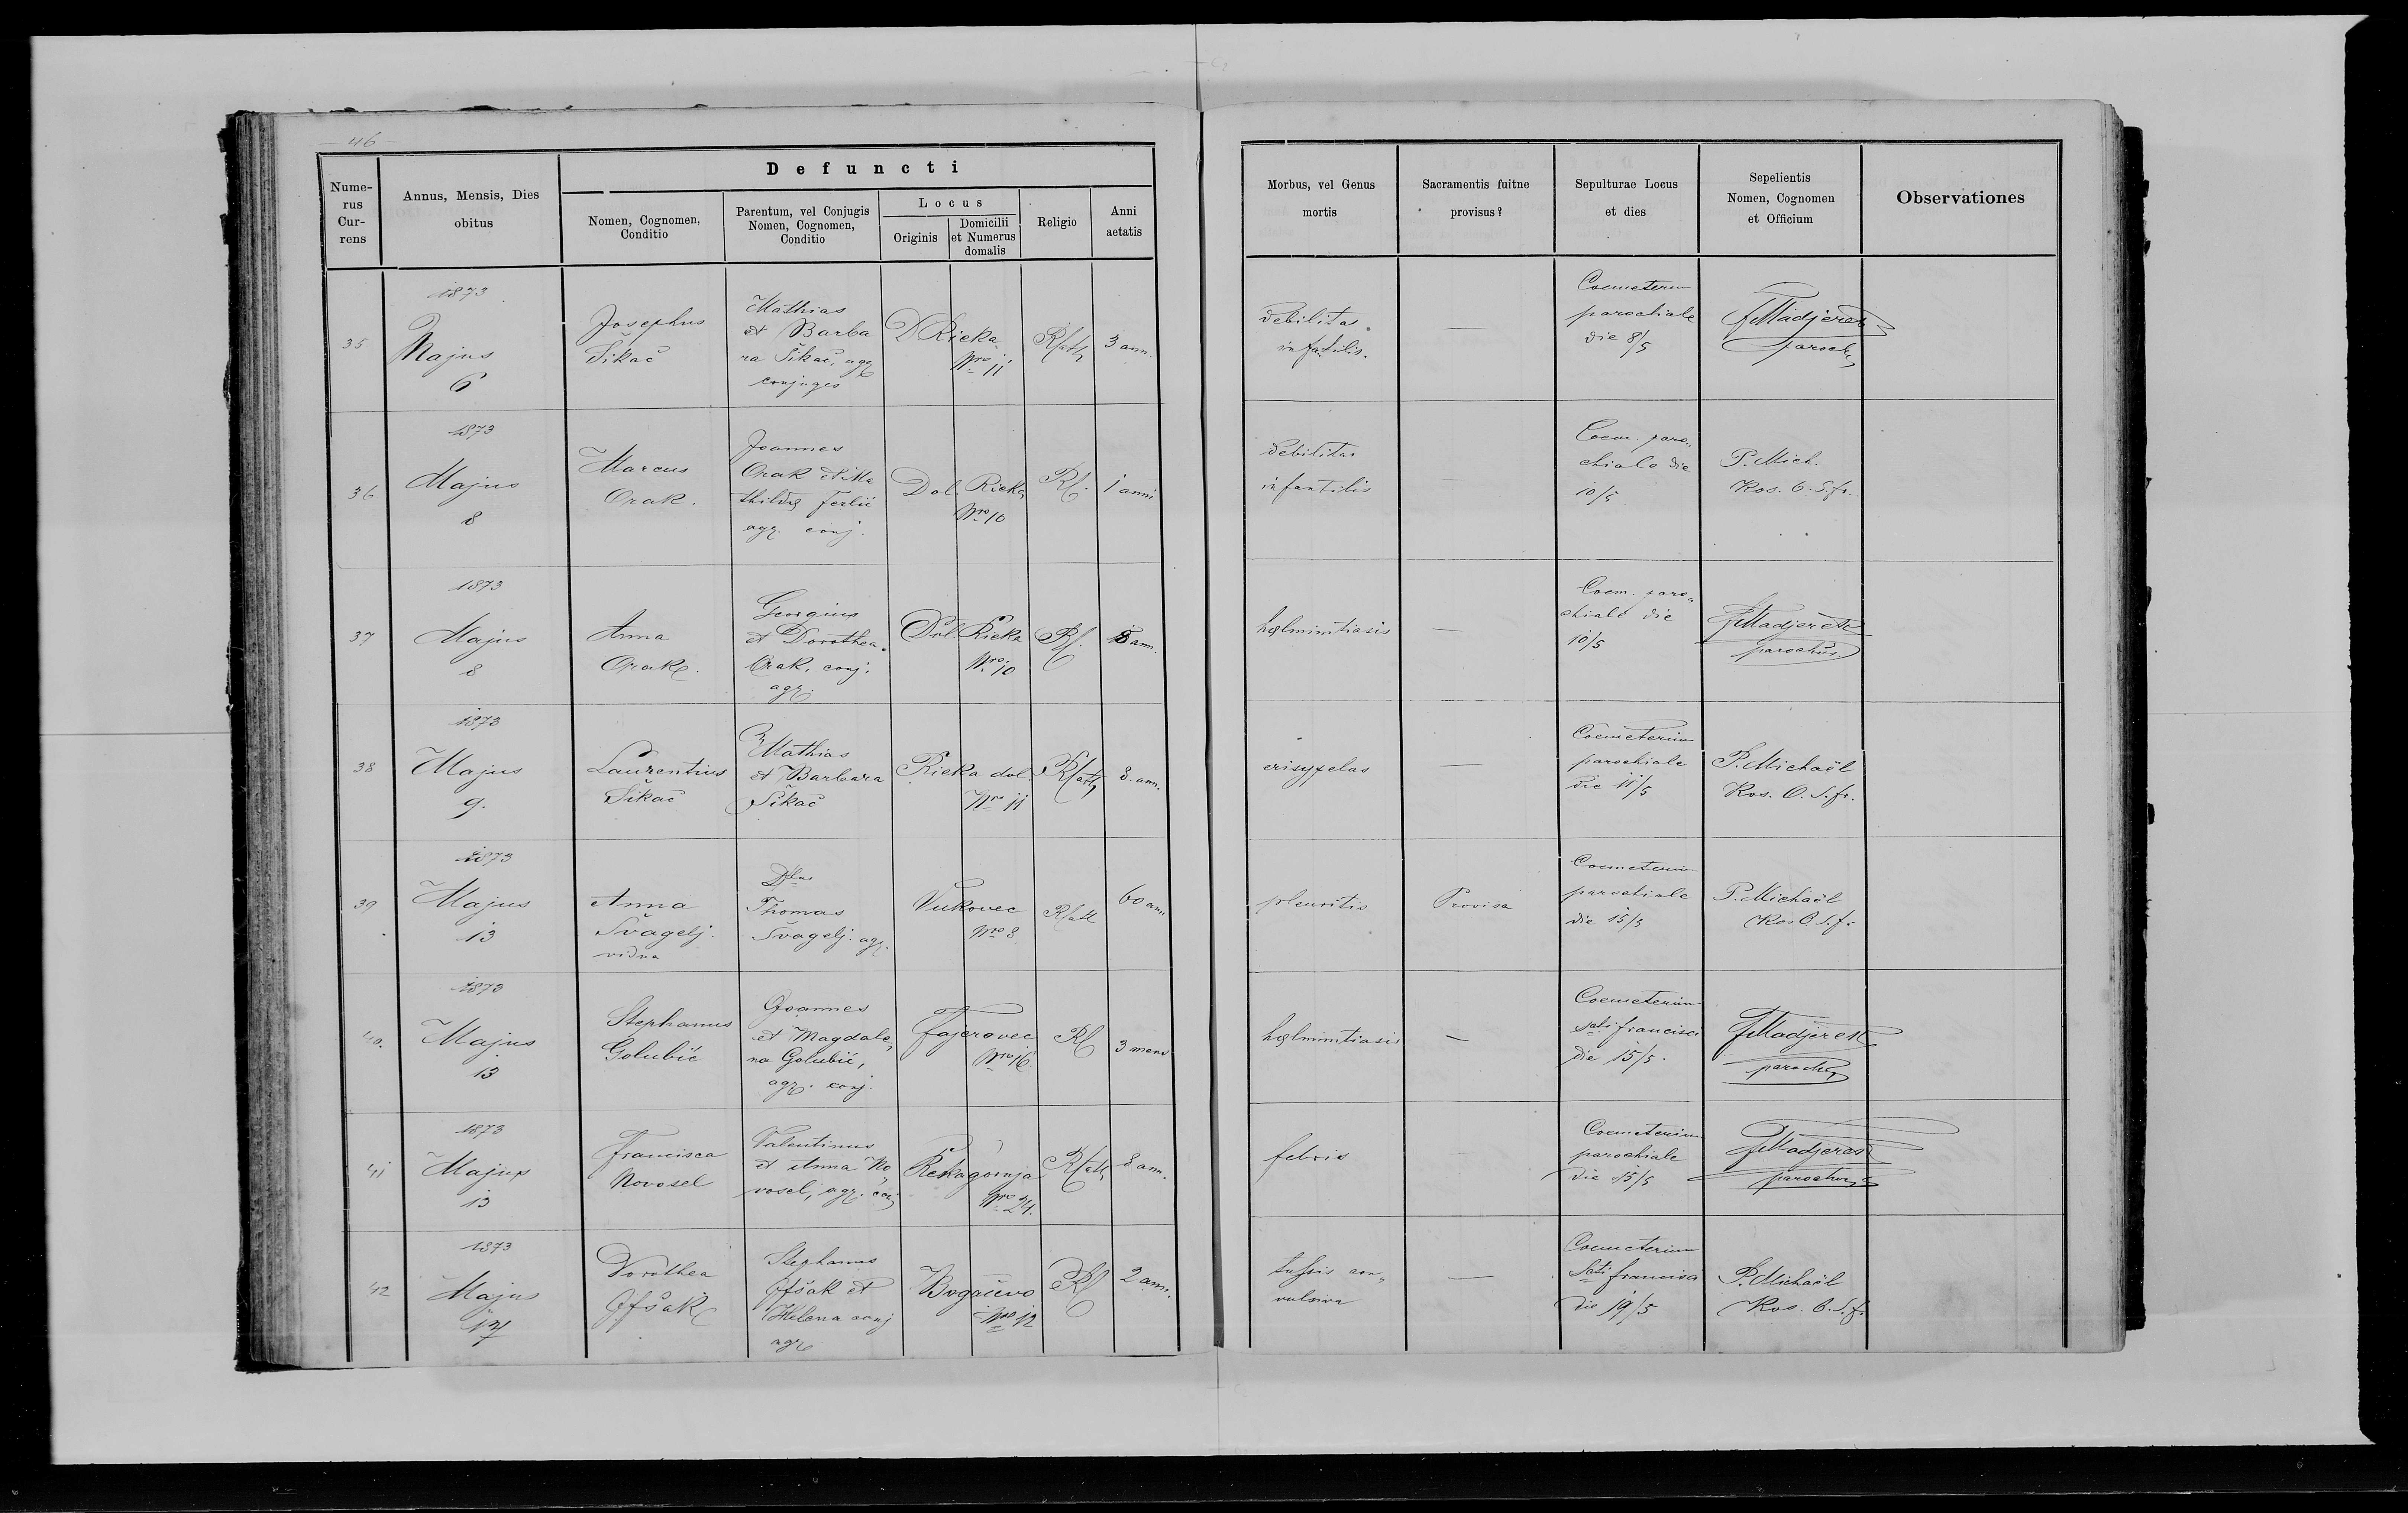 46
Defuncti
Numerus Currens
Annus, Mensis, Dies obitus
Nomen, Cognomen, Conditio
Parentum, vel Conjugis Nomen, Cognomen, Conditio
Locus
Originis
Domicilii et Numerus domalis
Religio
Anni aetatis
Morbus, vel Genus mortis
Sacramentis fuitne provisus?
Sepulturae Locus et dies
Sepelientis Nomen, Cognomen et Officium
Observationes
35
1873
Majus
6
Josephus
Šikač
Mathias
et Barba
ra Šikač, agr
conjuges
D Rieka
Nro 11
RCath
3 ann.
debilitas
infatilis.
—
Coemeterium
parochiale
die 8/5
Madjerek
paroch
36
1873
Majus
8
Marcus
Orak.
Joannes
Orak et Ma
thilda
agr. conj.
Dol. Rieka
Nro 10
RC.
1 anni
debilitas
infantilis
—
Coem. paro„
chiale die
10/5
P. Mich.
Kos. O. S. fr.
37
1873
Majus
8
Anna
Orak.
Georgius
et Dorothea
Orak, conj.
agr.
Dol. Rieka
Nro 10
RC.
8 ann.
helmintiasis
—
Coem. paro„
chiale die
10/5
Madjerek
parochus.
38
1873
Majus
9.
Laurentius
Šikač
Mathias
et Barbara
Šikač
Rieka dol.
Nro 11
RCath
8. ann.
erisypelas
—
Coemeterium
parochiale
die 11/5
P. Michaël
Kos. O. S. fr.
39
1873
Majus
13
Anna
Švagelj.
vidua
Thomas
Švagelj. agr.
Vukovec
Nro 8
RCath
60 ann
pleuritis
Provisa
Coemeterium
parochiale
die 15/5
P. Michaël
Kos O. S. f.
40.
1873
Majus
13
Stephanus
Golubić
Joannes
et Magdale„
na Golubić,
agr. conj.
Fajerovec
Nro 16.
RC
3 mens
helmintiasis
—
Coemeterium
Scti francisci
die 15/5.
Madjerek
paroch
41
1873
Majus
13
Francisca
Novosel
Valentinus
et Anna No„
vosel, agr. conj
Rekagornja
Nro 24.
RCath
8 ann.
febris
—
Coemeterium
parochiale
die 15/5
Madjerek
parochus
42
1873
Majus
17
Dorothea
Ifšak
Stephanus
Ifšak et
Helena conj
agr
Bogačevo
Nro 12
RC
2 ann.
tussis con„
vulsiva
—
Coemeterium
Scti francisci
die 19/5
P. Michaël
Kos. O. S. fr.